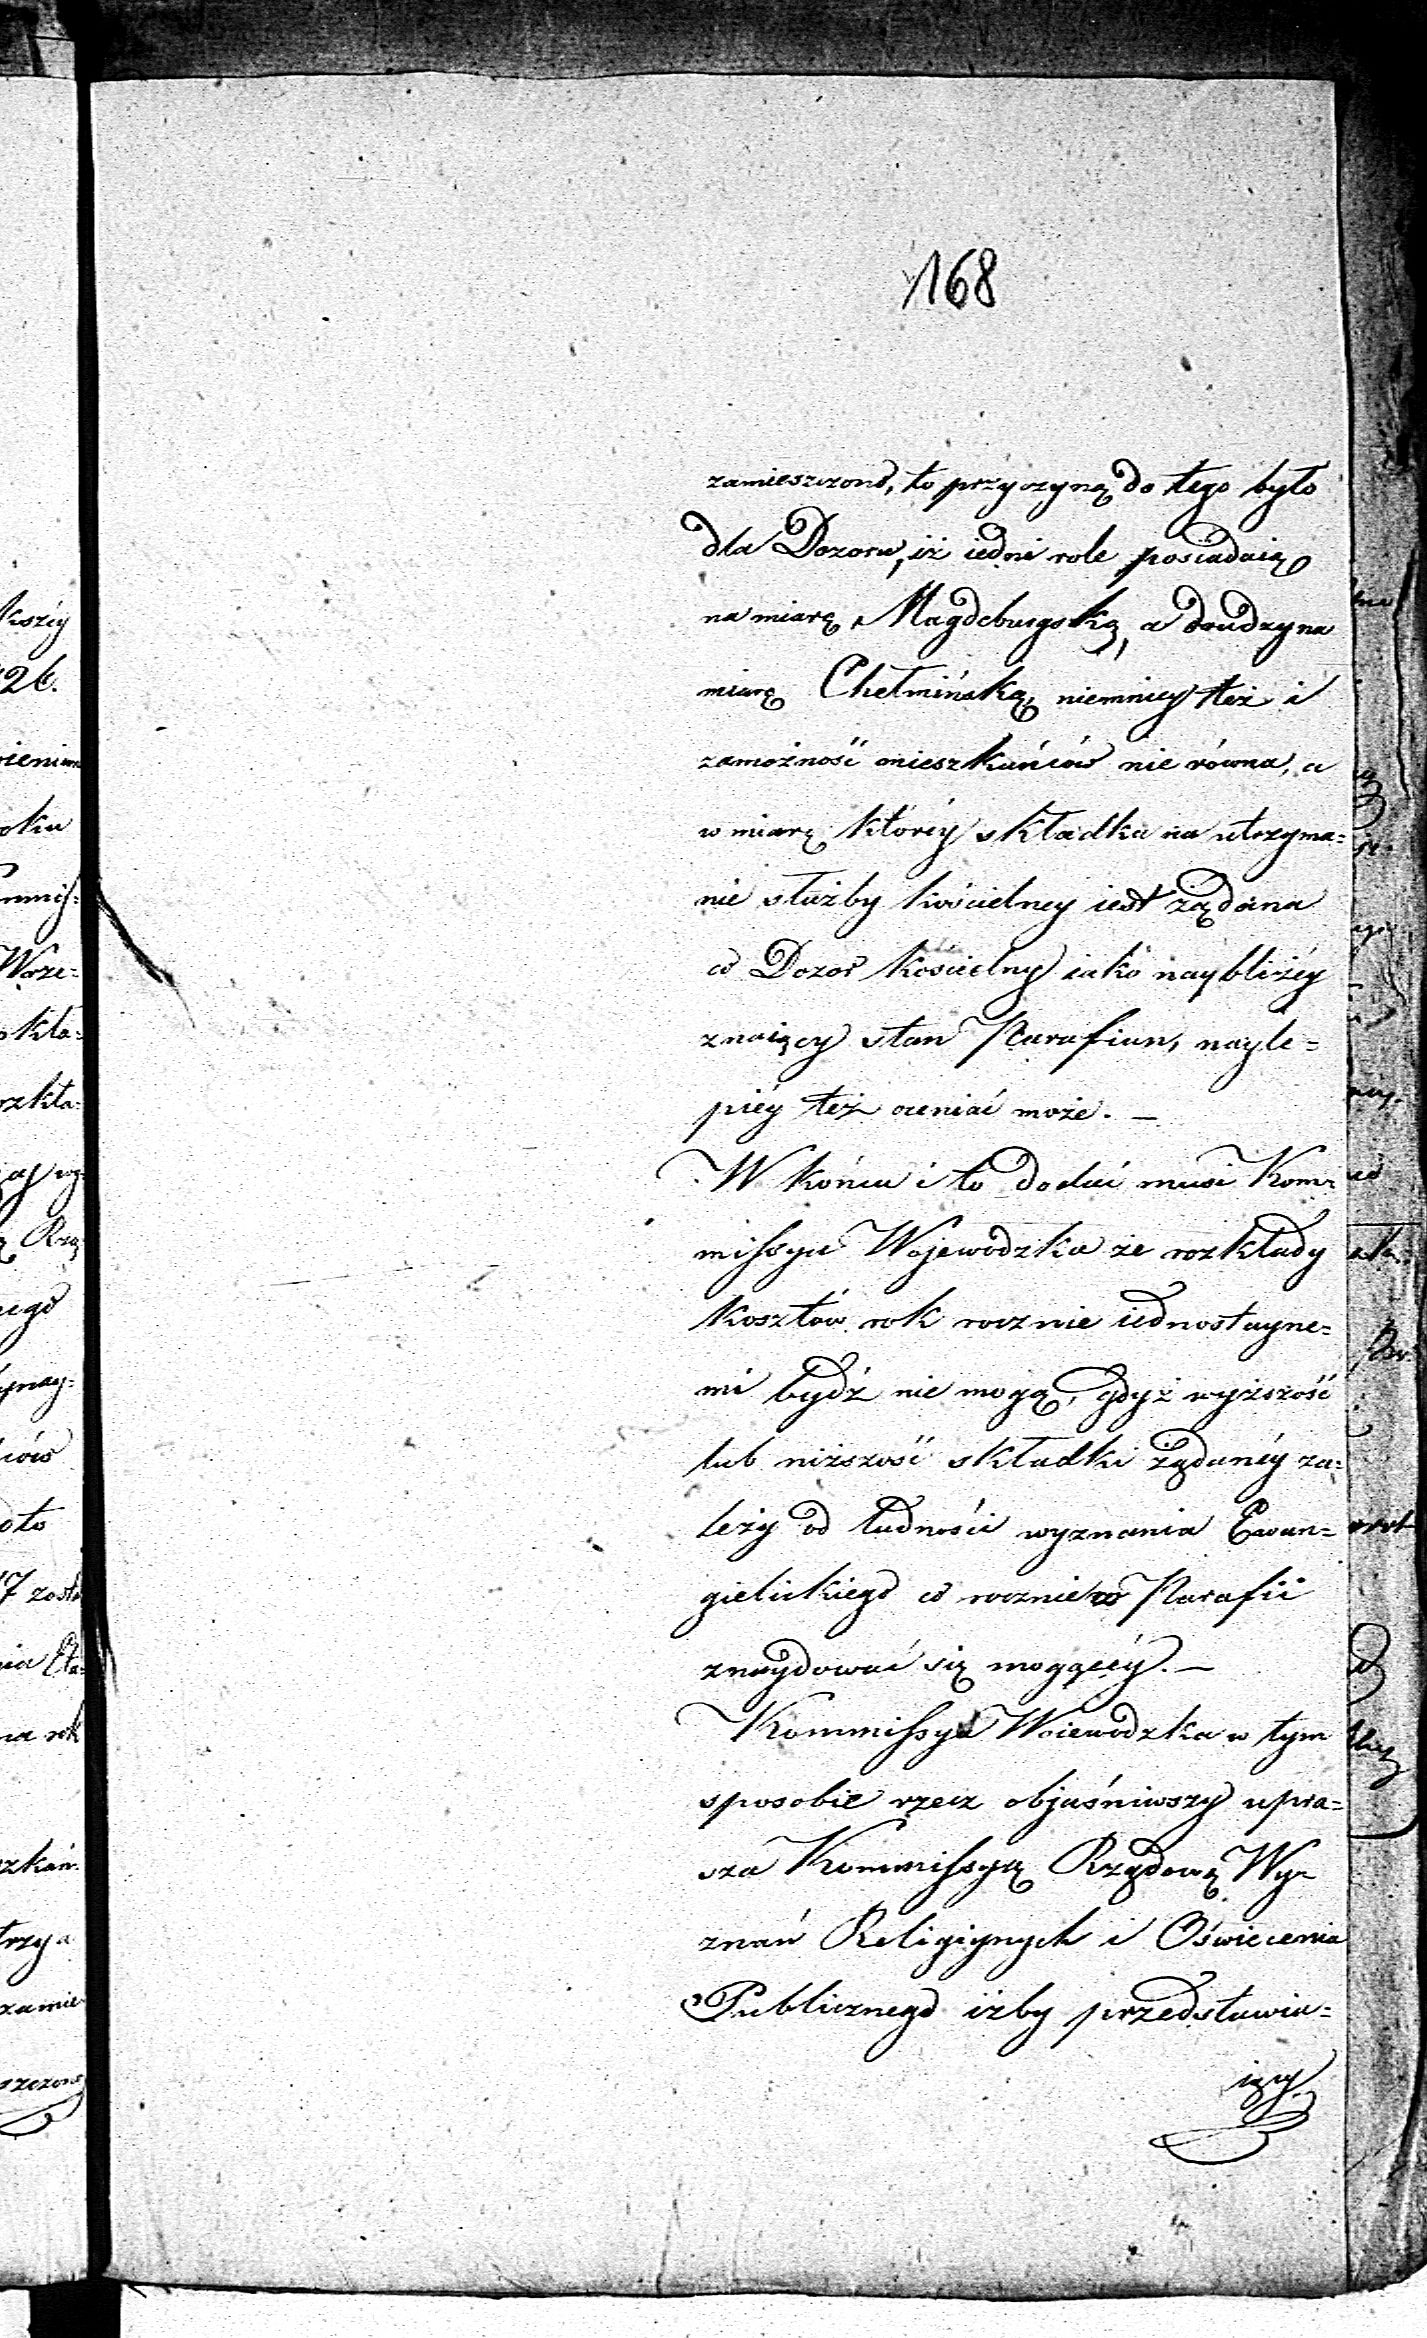 168
zamieszczono, to przyczyną do tego było
dla Dozoru, iż iedni role posiadaią
na miarę Magdeburgską, a drudzy na
miarę Chełmińską, niemniey też i
zamożność mieszkańców nie równa, a
w miarę któréy składka na utrzyma=
nie służby kościelney iest żądana
co Dozór kościelny iako naybliżéy
znaiący stan Parafian, nayle=
piéy też oceniać może. —
W końcu i to dodać musi Kom=
missya Wojewodzka że rozkłady
kosztów rok rocznie iednostayne=
mi bydź nie mogą, gdyż wyższość
lub niższość składki żądanéy za=
leży od ludności wyznania Ewan=
gielickiego co rocznie w Parafii
znaydować się mogącéy. —
Kommissya Woiewodzka w tym
sposobie rzecz objaśniwszy upra=
sza Kommissyą Rządową Wy=
znań Religiynych i Oświecenia
Publicznego iżby przedstawia=
iący